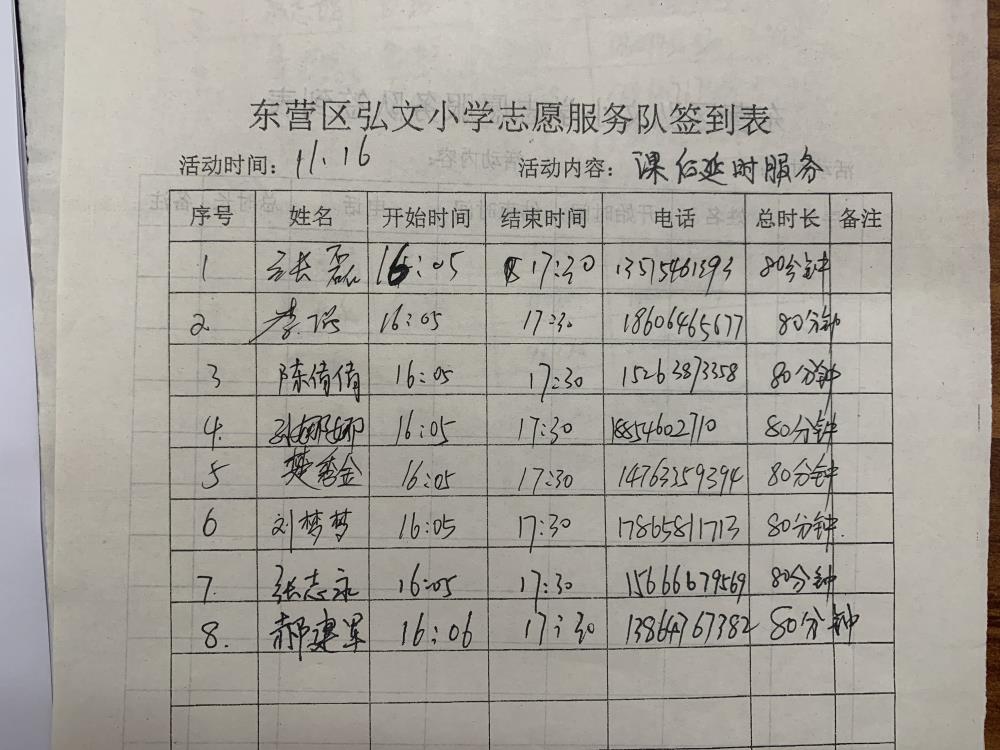 东营区弘文小学志愿服务队签到表
活动时间：11.16 活动内容：课后延时服务
序号 姓名 开始时间 结束时间 电话 总时长 备注
1 张磊 16:05 17:30 13515461393 80分钟
2. 李 16:05 17:30 18606465677 80分钟
3 陈倩倩 16:05 17:30 15263873358 80分钟
4. 孙娜娜 16:05 17:30 18854602710 80分钟
5 楚秀金 16:05 17:30 14763359394 80分钟
6 刘梦梦 16:05 17:30 17865811713 80分钟.
7. 张志永 16:05 17:30 15666679569 80分钟
8. 郝建军 16:06 17:30 13864767382 80分钟